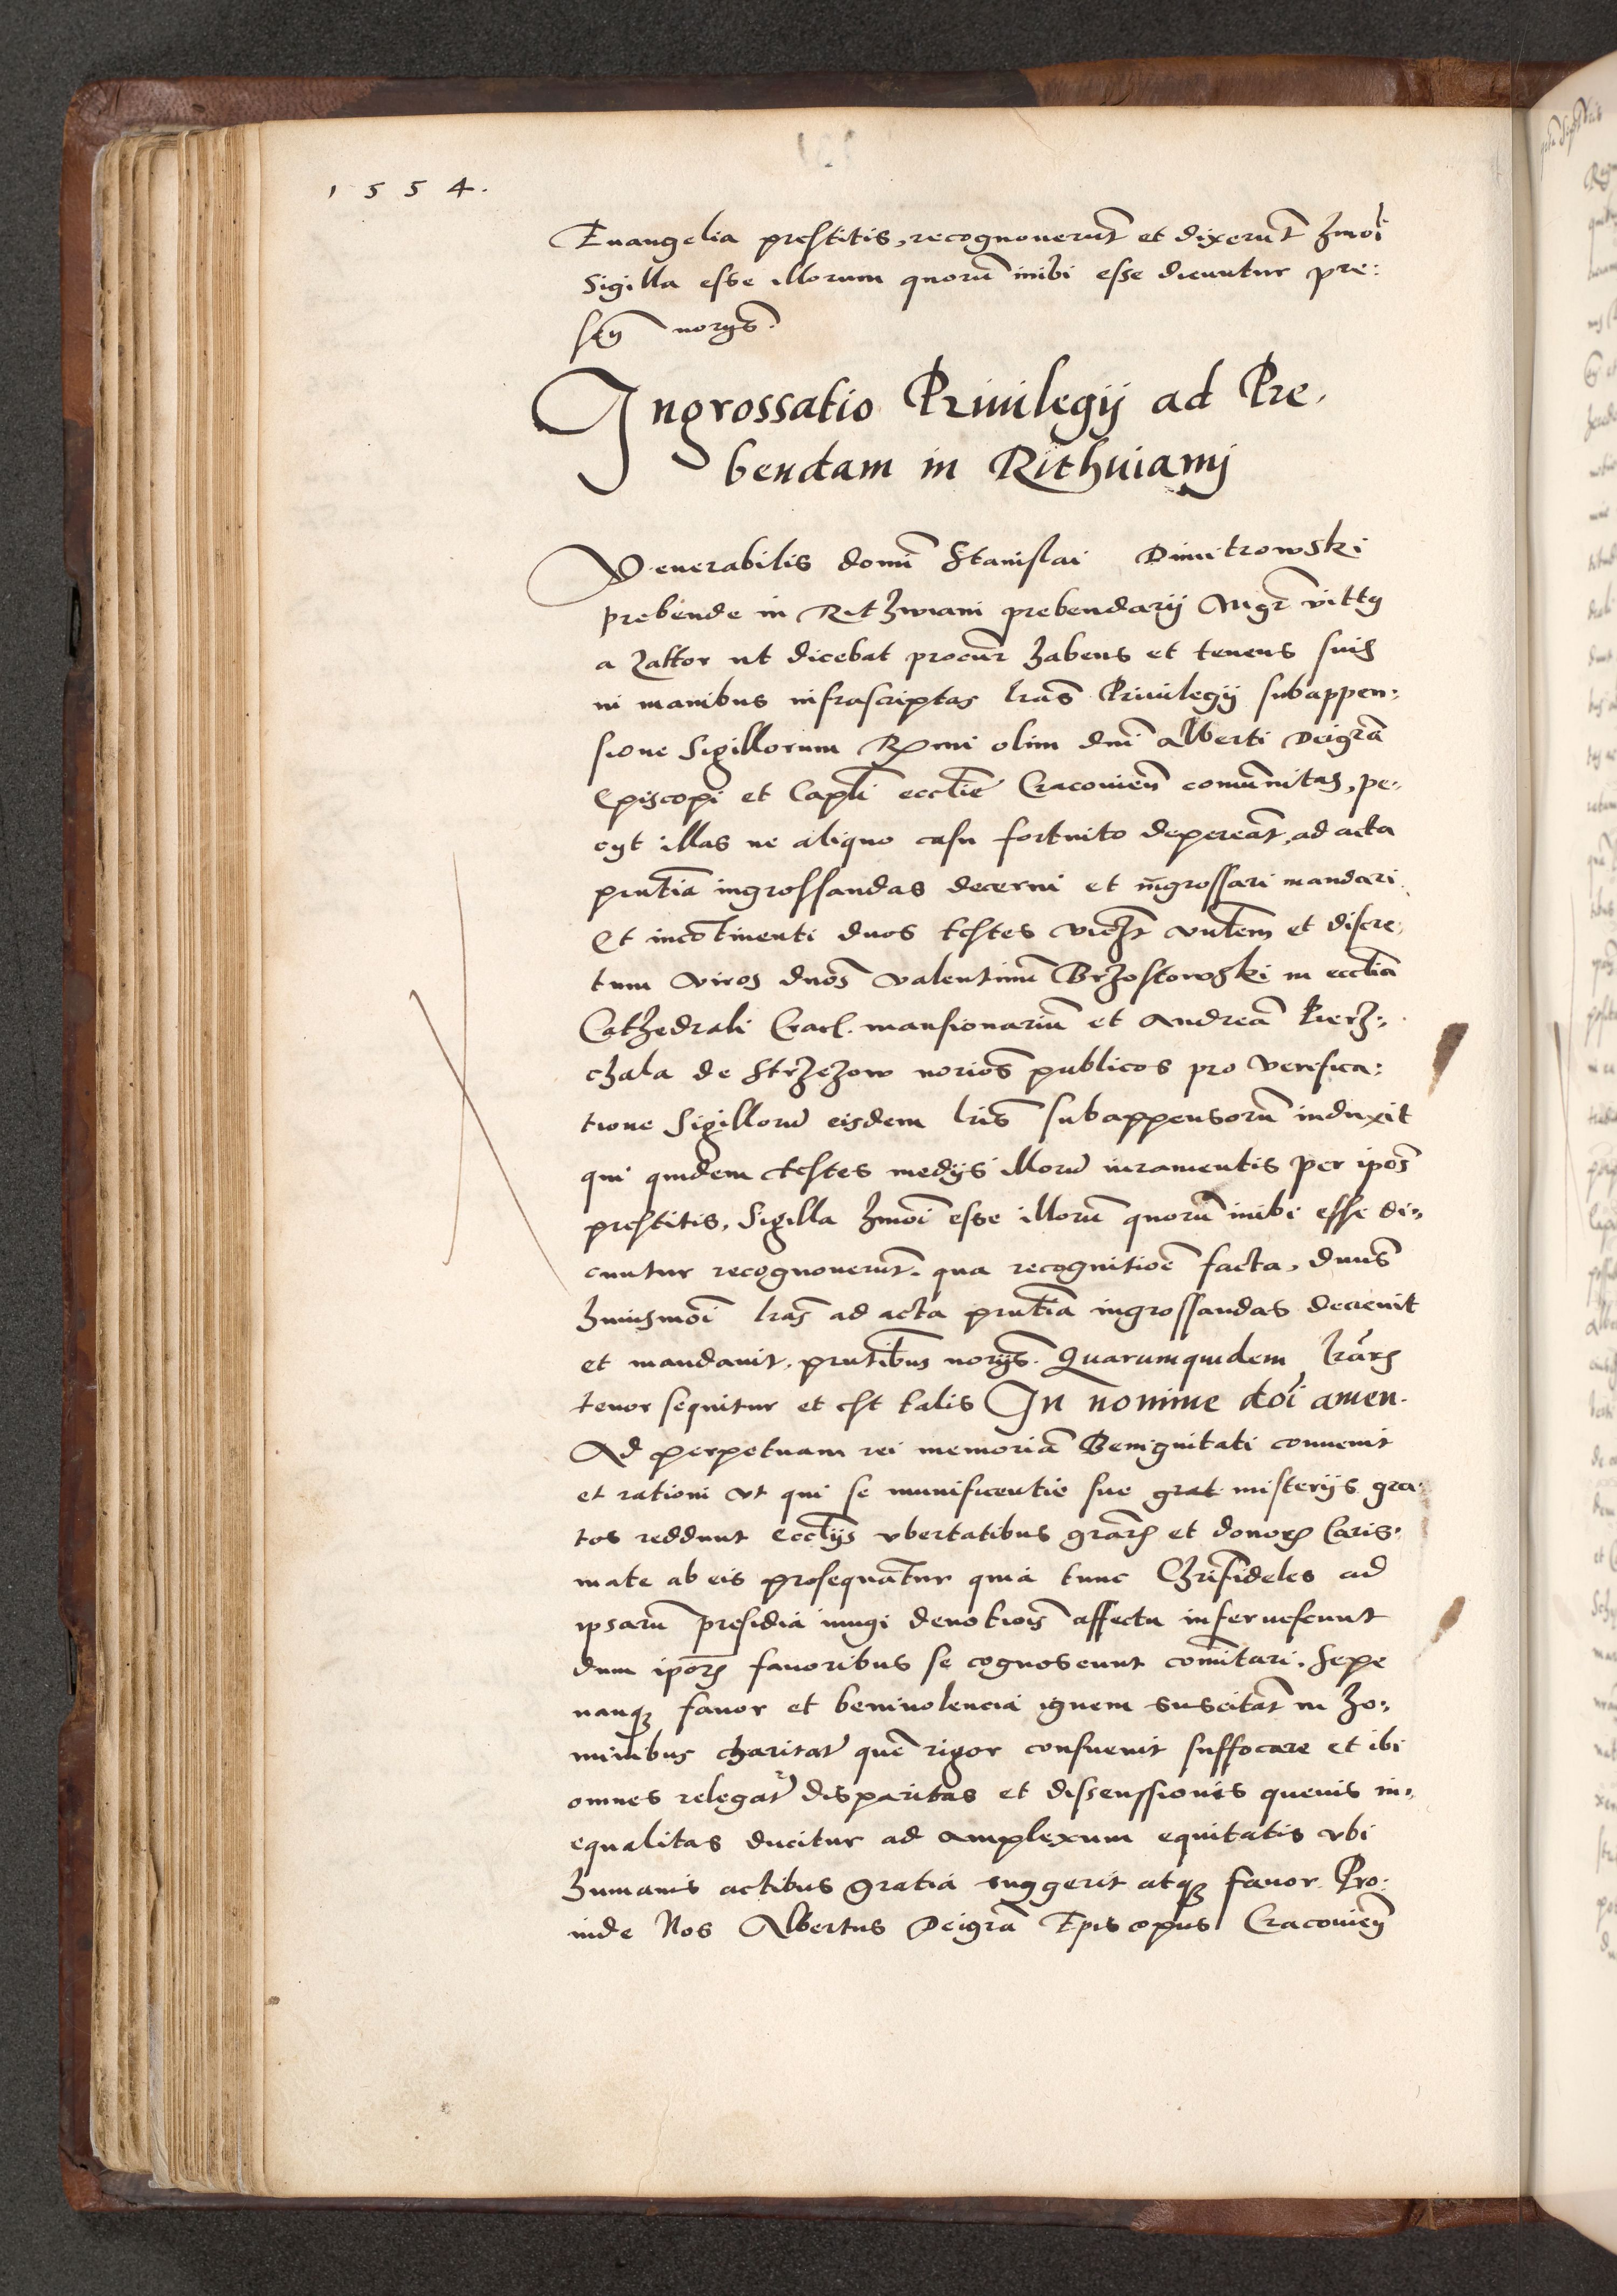 1554.
Euangelia prestitis, recognouerūt et dixerūt hmoī
Sigilla esse illorum quorū inibi esse dicuntur pre:
sen̄ norijs.
Ingrossatio Priuilegij ad Pre,
bendam in Rithuianij
Venerabilis domī Stanislai Dimitrowski
prebende in Rithwiani prebendarij Mgr̄ vitty
a Zattor ut dicebat procur̄ habens et tenens suis
in manibus infrascriptas lrās Priuilegij subappen:
sione Sigillorum Rm̄i olim dn̄i Alberti Deigrā
Episcopi et Capl̄i eccl̄ie Cracovien̄ comūnitas, pe,
cyt illas ne aliquo casu fortuito depereāt, ad acta
pn̄tia ingrossandas decerni et ingrossari mandari.
Et incōtinenti duos testes vidz vn̄lem et discre,
tum viros dnōs valentinū Brzostowski in eccl̄ia
Cathedrali Cracl. mansionariū et Andreā Pierz:
chala de Strzezow noriōs publicos pro verifica:
tione Sigillorū eisdem lr̄is subappensorū induxit
qui quidem testes medijs illorū iuramentis per ipōs
prestitis, Sigilla hmōi esse illorū quorū inibi esse di,
cuntur recognouerūt. qua recognitiōe facta, dn̄us
huiusmōi lrās ad acta pn̄tia ingrossandas decreuit
et mandauit. pn̄tibus norijs. Quarumquidem lrārꝫ
tenor sequitur et est talis In nomine dōi amen.
Ad perpetuam rei memoriā Benignitati conuenit
et rationi vt qui se munificentie sue grat misterijs gra,
tos reddunt eccl̄ijs vbertatibus grārꝫ et donorꝫ Caris,
mate ab eis prosequātur quia tunc Chr̄ifideles ad
ipsarū presidia iungi deuotiōis affectu inferuescunt
dum ipōrꝫ fauoribus se cognoscunt comitari. Sepe
nanqꝫ fauor et beniuolencia ignem suscitāt in ho,
minibus charitat̄ quē rigor consueuit suffocare et ibi
omnes relegat̄ disparitas et dissenssionis queuis in,
equalitas ducitur ad amplexum equitatis vbi
humanis actibus gratia suggerit atqꝫ fauor Pro,
inde Nos Albertus Deigrā Episcopus Cracouien̄